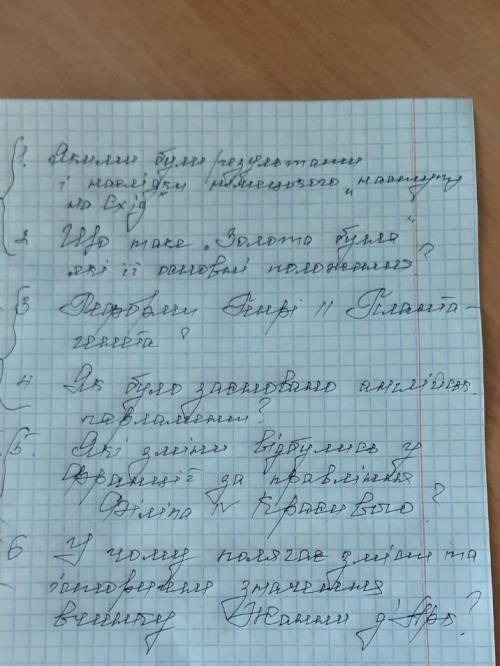 1. Якими були результати
і наслідки німецького „наступу
на Схід"?
2 Що таке „Золота булла"
які її основні положення?
3 Реформи Генрі II Планта-
генета?
4 Як було засновано англійск.
парламент?
5. Які зміни відбулись у
Франції за правління
Філіпа IV Красивого?
6 У чому полягає зміст та
історичне значення
вчинку Жанни д'Арк?